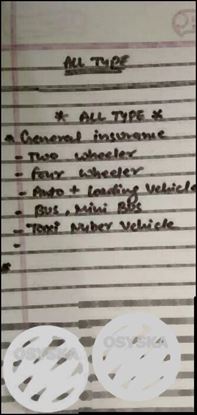 ALL TYPE
* ALL TYPE *
* General insurance
- Two wheeler
- Four wheeler
- Auto + Loading Vehicle
- Bus, Mini Bus
- Taxi Nuber Vehicle
-
*
OSYSKA OSYSKA